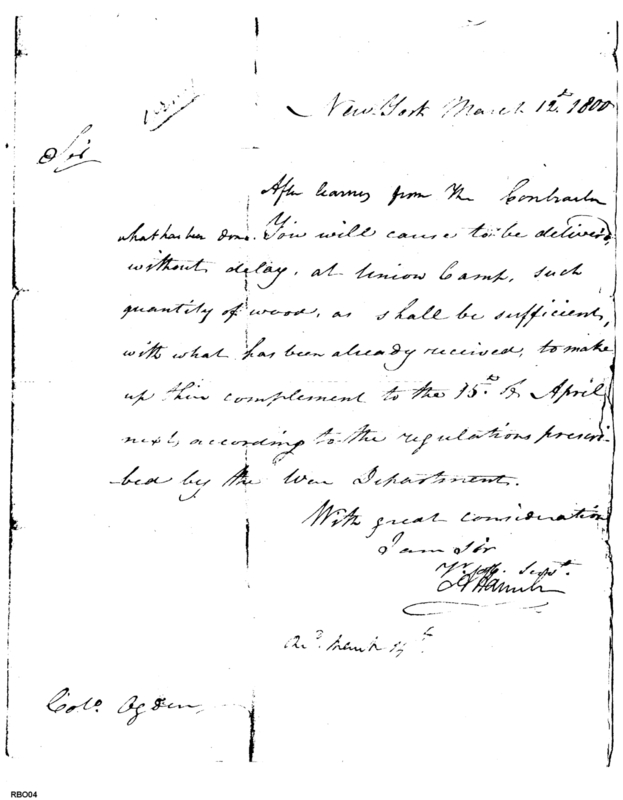 New York March 12th 1800
Sir
After learning from the Contractor
what has been done. You will cause to be delivered,
without delay, at Union Camp, such
quantity of wood, as shall be sufficient,
with what has been already received, to make
up their complement to the 15th of April
next, according to the regulations prescri-
-bed by the War Department.
With great consideration
I am Sir
Yr. Servt.
A Hamilton
March
Colo. Ogden,
RBO04